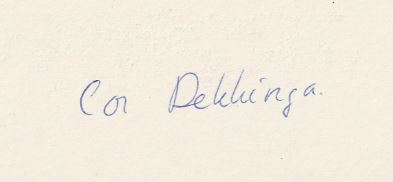 Cor Dekkinga.